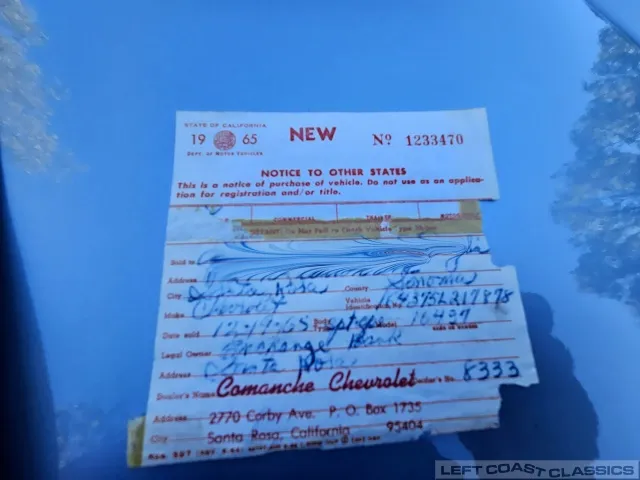 STATE OF CALIFORNIA
19 65 NEW Nº 1233470
DEPT. OF MOTOR VEHICLES
NOTICE TO OTHER STATES
This is a notice of purchase of vehicle. Do not use as an applica-
tion for registration and/or title.
COMMERCIAL TRAILER
Sold to
Address
City Santa Rosa County Sonoma
Make Chevrolet Vehicle Identification No. 164375L217878
Date sold 12-19-65 Body Model 16437
Legal Owner Exchange Bank
Address Santa Rosa
Dealer's Name Comanche Chevrolet Dealer's No. 8333
Address 2770 Corby Ave. P. O. Box 1735
City Santa Rosa, California 95404
LEFT COAST CLASSICS